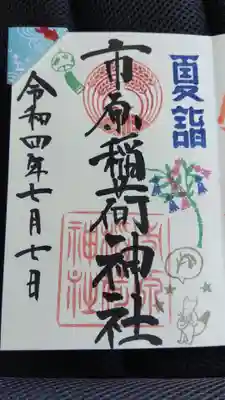 夏詣
市原稲荷神社
令和四年七月七日